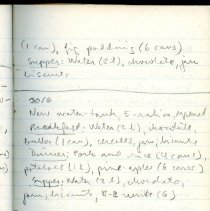 (1 can), fig pudding (6 cans)
Supper: Water (2 l), chocolate, jam
biscuits
30/6
New water-tank, 5-ration, opened
Breakfast: Water (2 l), chocolate,
butter (1 can), cereals, jam, biscuits
Dinner: Pork and rice (4 cans),
potatoes (1 l), pine-apples (6 cans)
Supper: Water (2 l), chocolate,
jam, biscuits, (6)